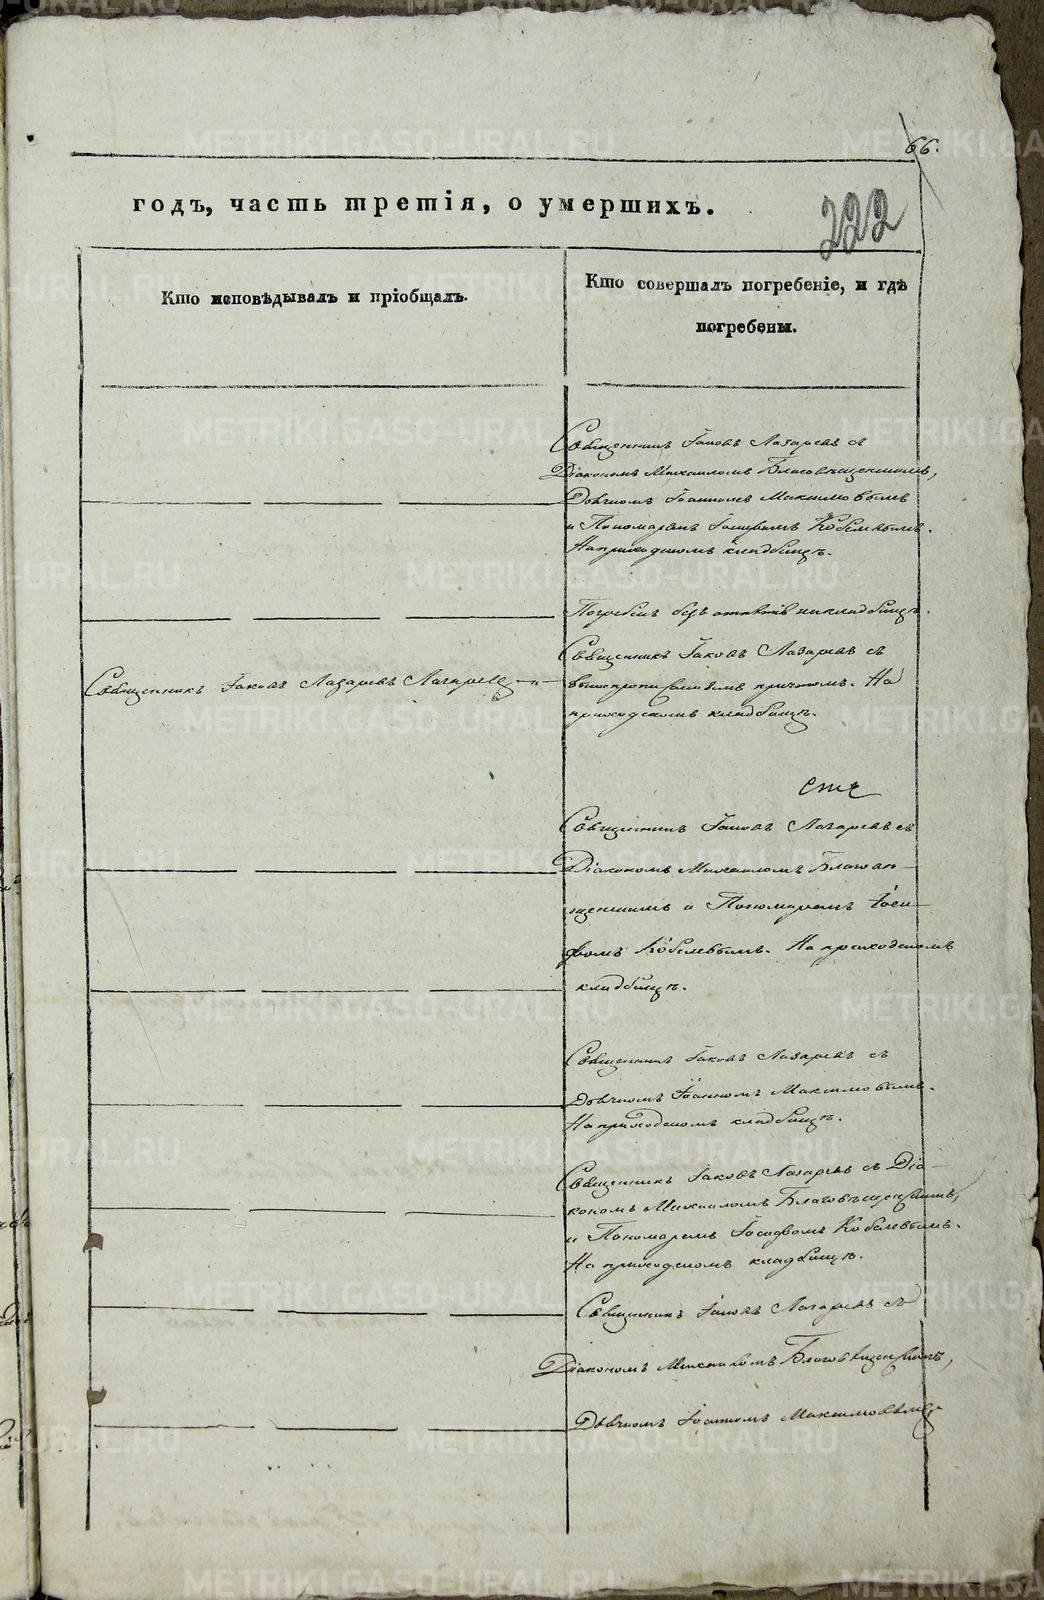 66.
годъ, часть третія, о умершихъ.
222
Кто исповѣдывалъ и пріобщалъ.
Кто совершалъ погребеніе, и гдѣ
погребены.
Священникъ Іаковъ Лазаревъ съ
Діакономъ Михаиломъ Благовѣщенскимъ,
Дьячкомъ Іоанномъ Максимовымъ
и Пономаремъ Іосифомъ Кобелевымъ.
На приходскомъ кладбищѣ.
Погребенъ безъ отпѣтія на кладбищѣ.
Священникъ Іаковъ Лазаревъ съ
Священникъ Іаковъ Лазаревъ
вышепрописаннымъ причтомъ. На
приходскомъ кладбищѣ.
Священникъ Іаковъ Лазаревъ съ
Діакономъ Михаиломъ Благовѣ-
щенскимъ и Пономаремъ Іоси-
фомъ Кобелевымъ. На приходскомъ
кладбищѣ.
Священникъ Іаковъ Лазаревъ съ
Дьячкомъ Іоанномъ Максимовымъ.
На приходскомъ кладбищѣ.
Священникъ Іаковъ Лазаревъ съ Діа-
кономъ Михаиломъ Благовѣщенскимъ,
и Пономаремъ Іосифомъ Кобелевымъ.
На приходскомъ кладбищѣ.
Священникъ Іаковъ Лазаревъ съ
Діакономъ Михаиломъ Благовѣщенскимъ,
Дьячкомъ Іоанномъ Максимовымъ
METRIKI.GASO-URAL.RU